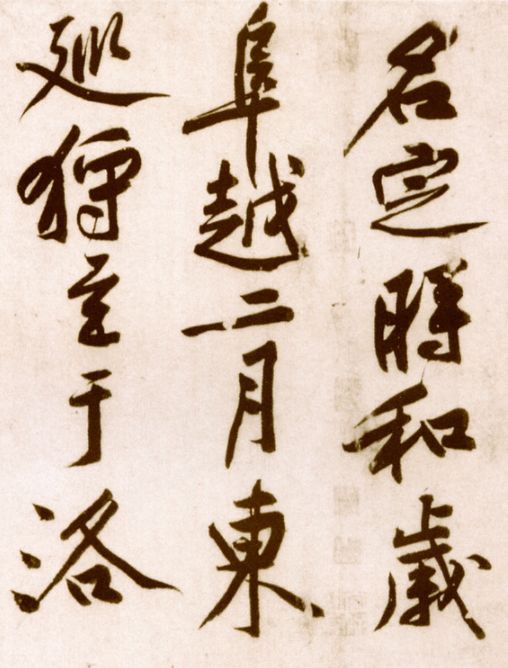 名定時和歲
阜越二月東
巡狩至于洛